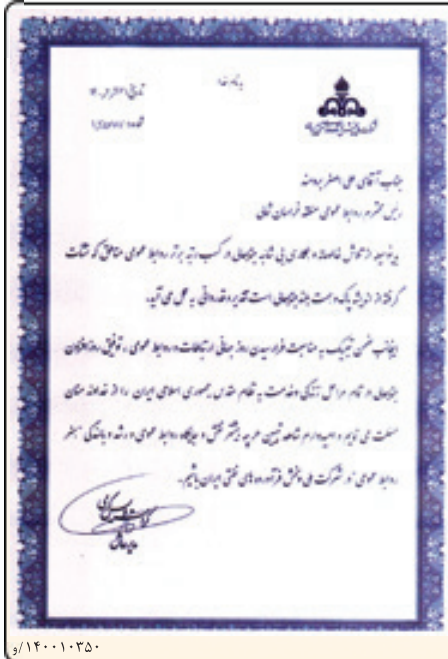 بنام خدا
تاریخ
شماره
جناب آقای علی اصغر برومند
رئیس محترم روابط عمومی منطقه خراسان شمالی
بدینوسیله از تلاش خالصانه و همکاری بی شائبه جنابعالی در کسب رتبه برتر روابط عمومی مناطق که نشات
گرفته از اندیشه پاک و همت بلند جنابعالی است تقدیر و قدردانی به عمل می آید.
اینجانب ضمن تبریک به مناسبت فرارسیدن روز جهانی ارتباطات و روابط عمومی، توفیق روزافزون
جنابعالی در تمام مراحل زندگی و خدمت به نظام مقدس جمهوری اسلامی ایران را از خداوند منان
مسئلت می نمایم و امیدوارم شاهد تبیین هرچه بیشتر نقش و جایگاه روابط عمومی و رشد و بالندگی بیشتر
روابط عمومی در شرکت ملی پخش فرآورده های نفتی ایران باشیم.
مدیرعامل
۱۴۰۰۱۰۳۵۰/و